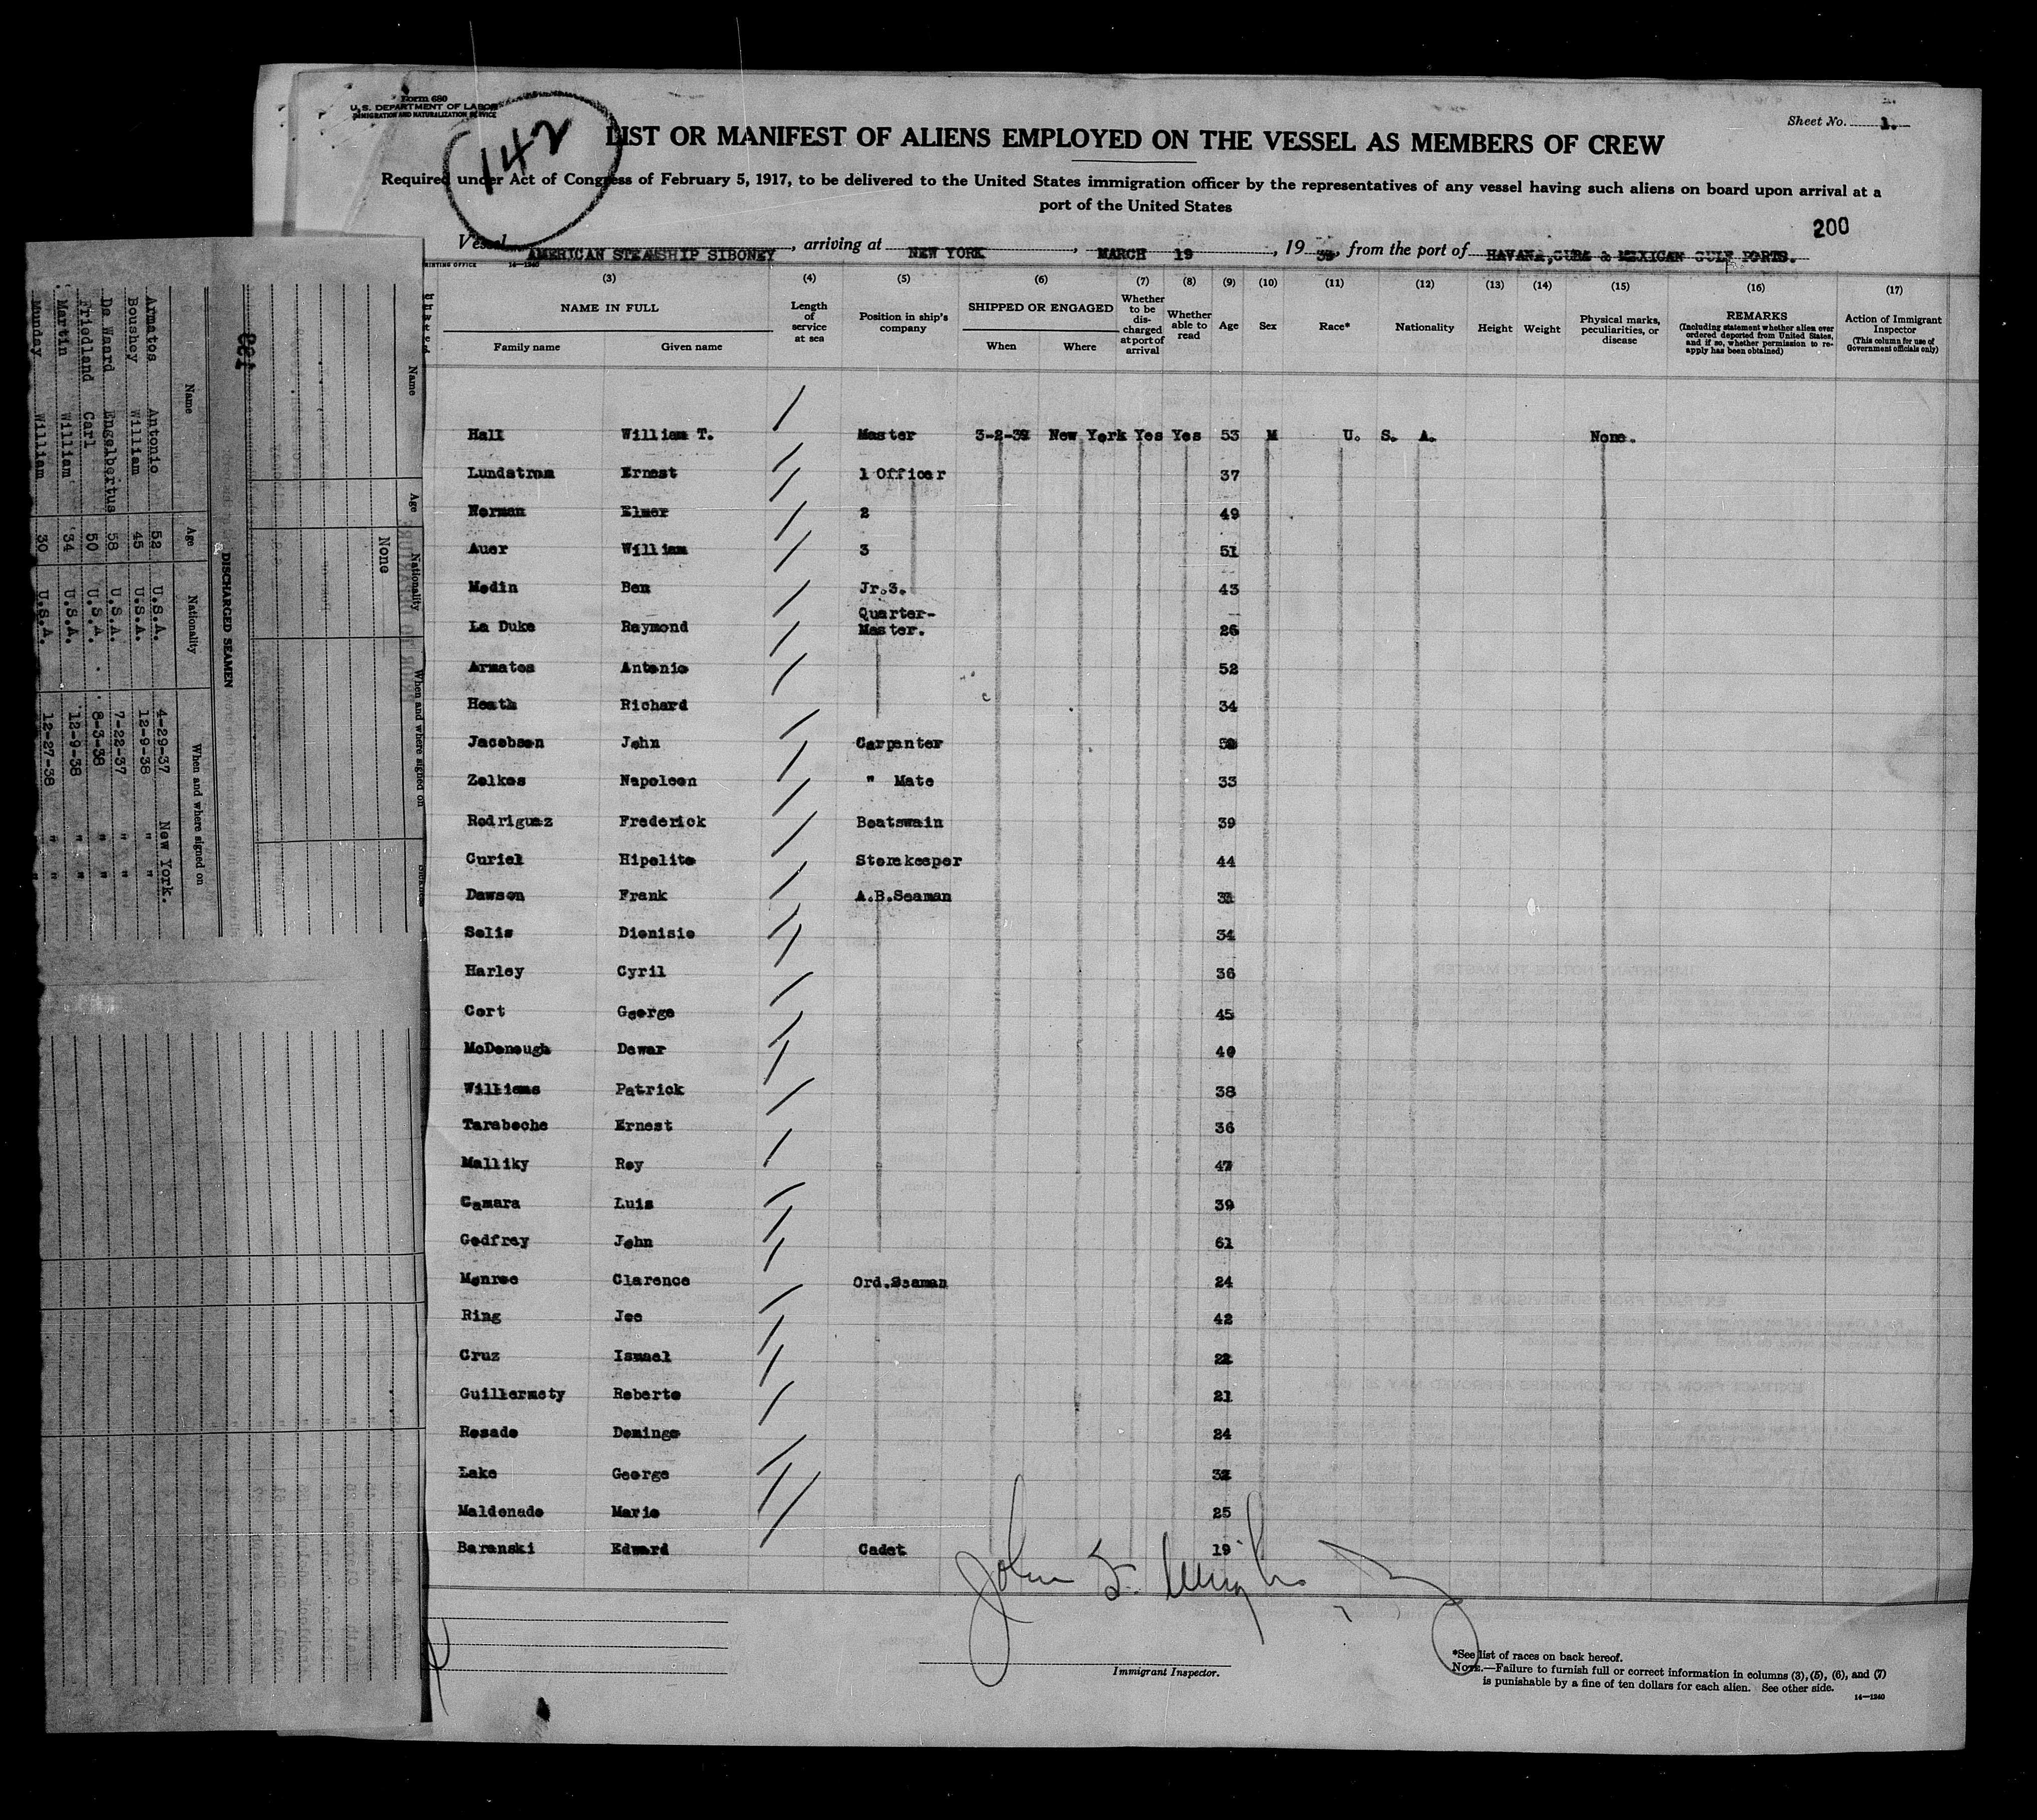 Form 680
U.S. DEPARTMENT OF LABOR
IMMIGRATION AND NATURALIZATION SERVICE
142
Sheet No. 1.
LIST OR MANIFEST OF ALIENS EMPLOYED ON THE VESSEL AS MEMBERS OF CREW
Required under Act of Congress of February 5, 1917, to be delivered to the United States immigration officer by the representatives of any vessel having such aliens on board upon arrival at a
port of the United States
200
Vessel AMERICAN STEAMSHIP SIBONEY, arriving at NEW YORK, MARCH 19, 19 39, from the port of HAVANA, CUBA & MEXICAN GULF PORTS.
(3) (4) (5) (6) (7) (8) (9) (10) (11) (12) (13) (14) (15) (16) (17)
NAME IN FULL
Family name Given name
Length of service at sea
Position in ship's company
SHIPPED OR ENGAGED
When Where
Whether to be discharged at port of arrival
Whether able to read
Age
Sex
Race*
Nationality
Height
Weight
Physical marks, peculiarities, or disease
REMARKS
(Including statement whether alien ever ordered deported from United States, and if so, whether permission to reapply has been obtained)
Action of Immigrant Inspector
(This column for use of Government officials only)
Hall William T. Master 3-2-39 New York Yes Yes 53 M U. S. A. None.
Lundstrom Ernest 1 Officer 37
Norman Elmer 2 49
Auer William 3 51
Modin Ben Jr.3. 43
La Duke Raymond Quarter-Master. 26
Armatos Antonio 52
Heath Richard 34
Jacobson John Carpenter
Zolkos Napoleon " Mate 33
Rodriguez Frederick Boatswain 39
Curiel Hipolito Storekeeper 44
Dawson Frank A.B.Seaman
Solis Dionisio 34
Harley Cyril 36
Cort George 45
McDonough Dewar 40
Williams Patrick 38
Taraboche Ernest 36
Malliky Roy 47
Camara Luis 39
Godfrey John 61
Monroe Clarence Ord.Seaman 24
Ring Joe 42
Cruz Ismael
Guillermety Roberto 21
Rosado Domingo 24
Lake George
Maldonado Mario 25
Baranski Edward Cadet 19
Immigrant Inspector.
*See list of races on back hereof.
NOTE.—Failure to furnish full or correct information in columns (3), (5), (6), and (7)
is punishable by a fine of ten dollars for each alien. See other side.
14—1240
PRINTING OFFICE 14—1240
Name Age Nationality When and where signed on
None
DISCHARGED SEAMEN
Name Age Nationality When and where signed on
Armatos Antonio 52 U.S.A. 4-29-37 New York.
Boushey William 45 U.S.A. 12-9-38 " "
De Waard Engelbertus 58 U.S.A. 7-22-37 " "
Friedland Carl 50 U.S.A. 8-3-38 " "
Martin William 34 U.S.A. 12-9-38 " "
Munday William 30 U.S.A. 12-27-38 " "